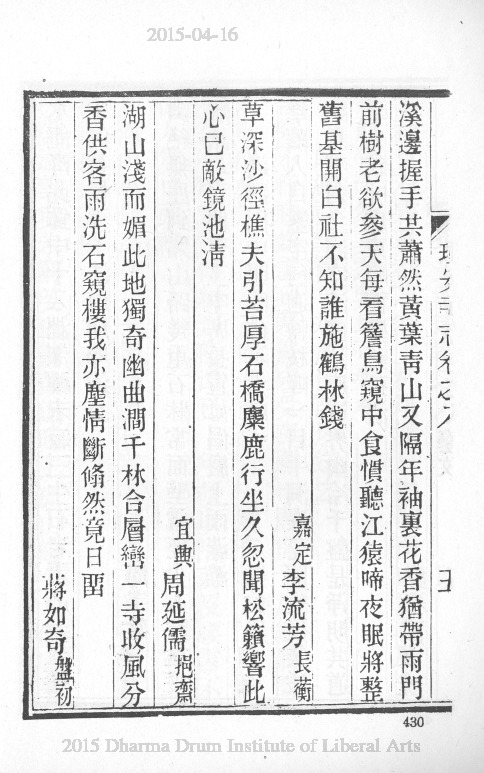 2015-04-16
理安寺志卷之八
五
溪邊握手共蕭然黃葉靑山又隔年袖裏花香猶帶雨門
前樹老欲參天每看簷鳥窺中食慣聽江猿啼夜眠將整
舊基開白社不知誰施鶴林錢
嘉定李流芳長蘅
草深沙徑樵夫引苔厚石橋麋鹿行坐久忽聞松籟響此
心已敵鏡池淸
宜興周延儒挹齋
湖山淺而媚此地獨奇幽曲澗千林合層巒一寺收風分
香供客雨洗石窺樓我亦塵情斷翛然竟日畱
蔣如奇盤初
430
2015 Dharma Drum Institute of Liberal Arts